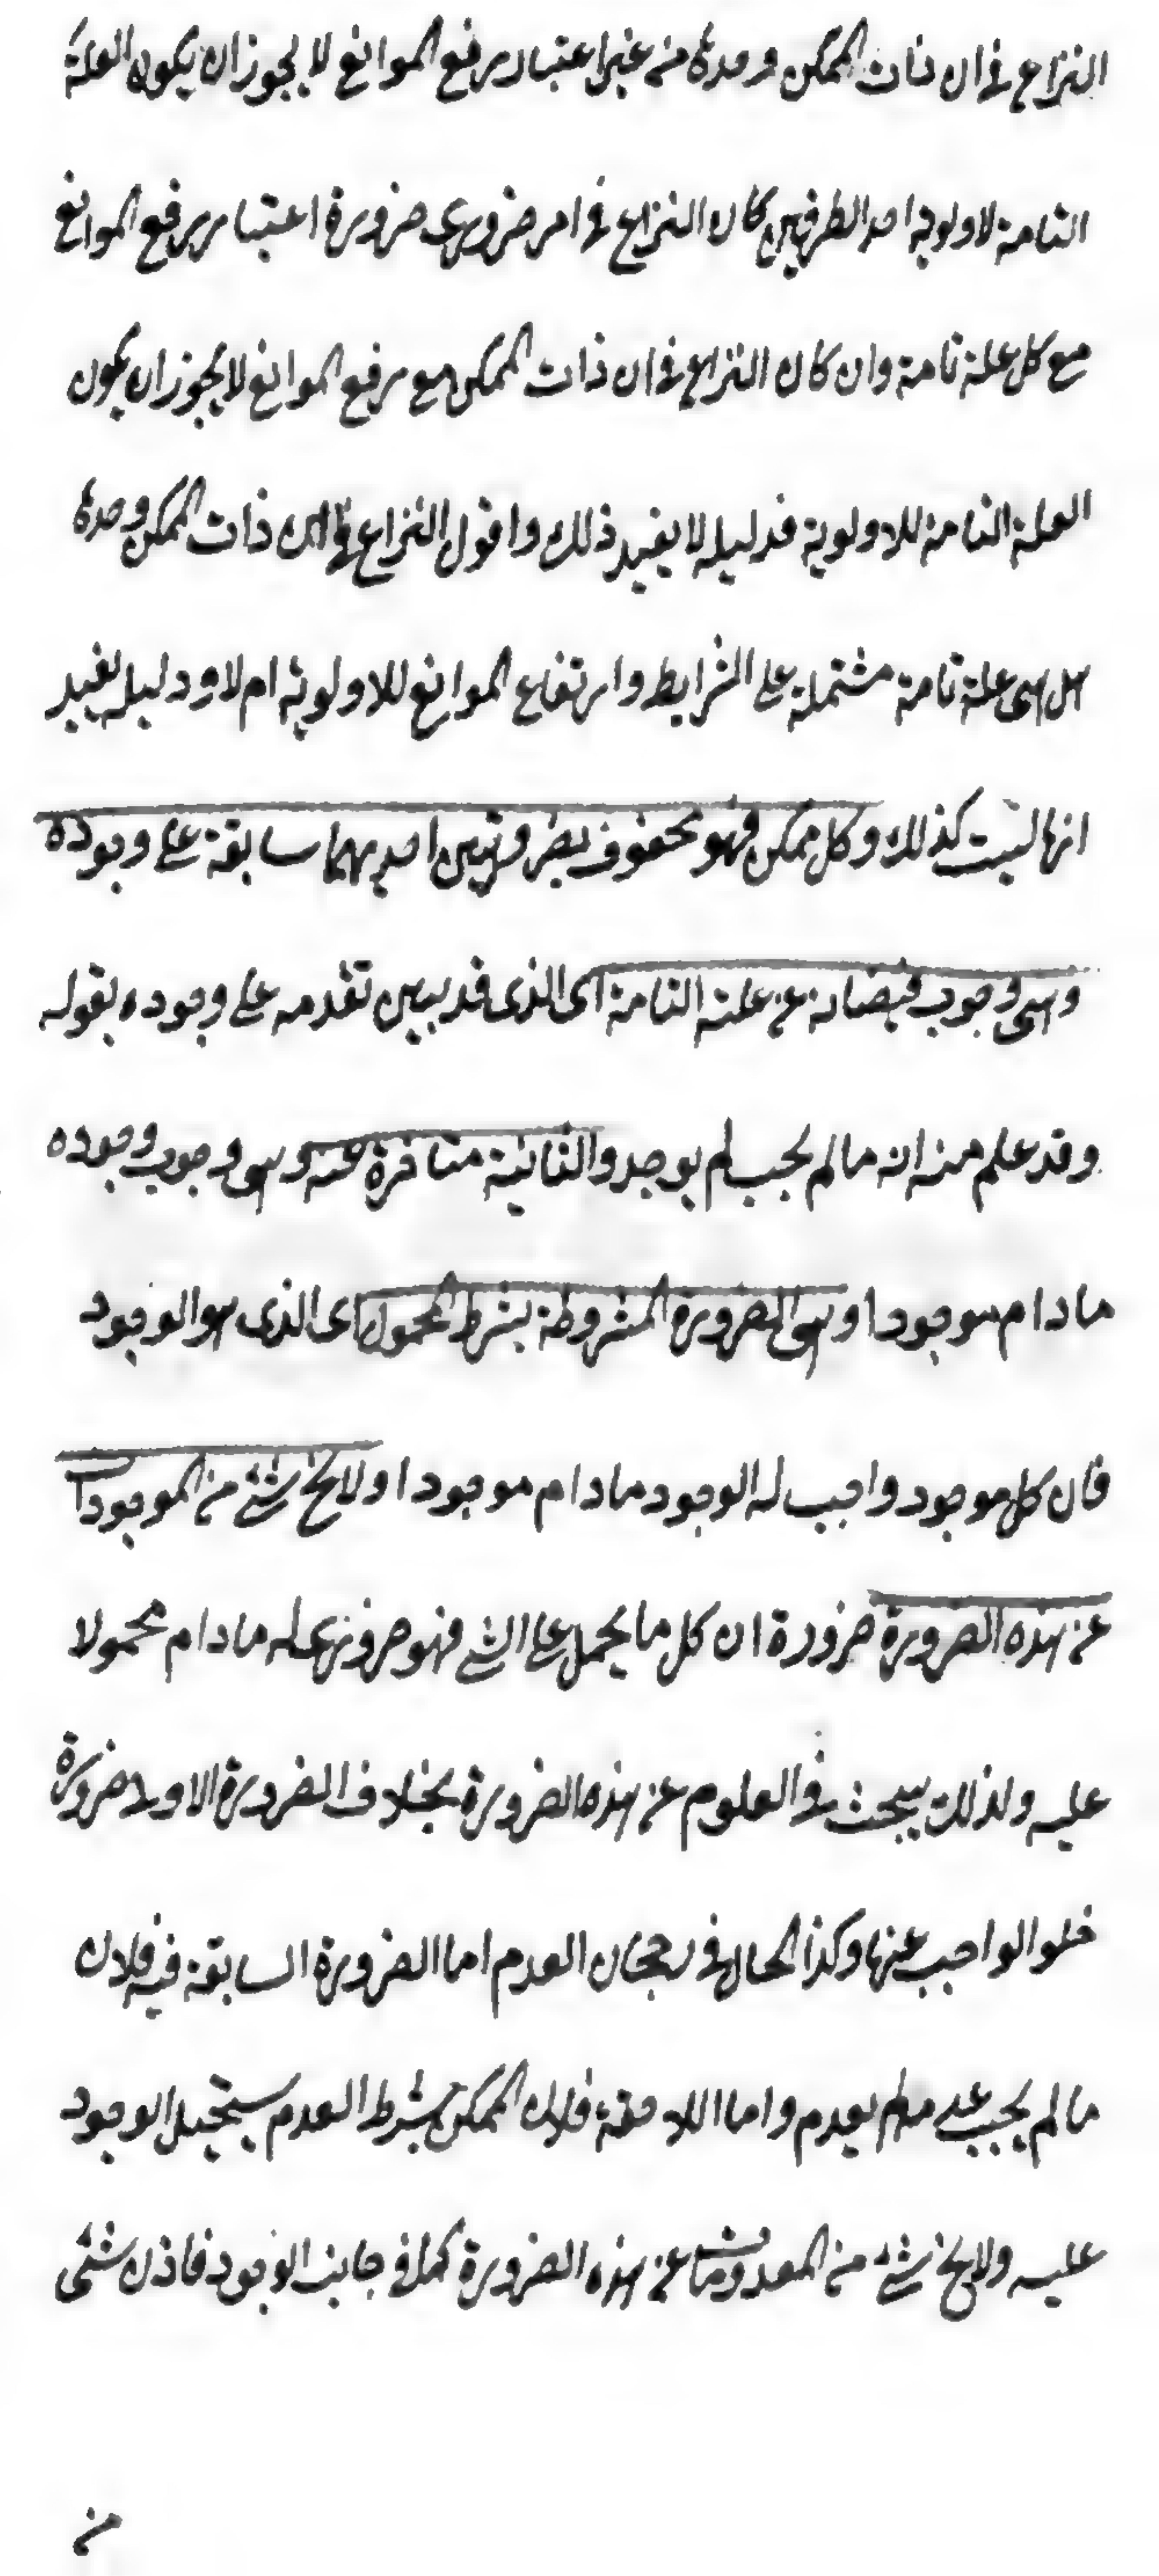 النزاع في ان ذات الممكن وحدها من غير اعتبار رفع الموانع لا يجوز ان يكون العلة
التامة لاولوية احد الطرفين كان النزاع في امر ضروري ضرورة اعتبار رفع الموانع
مع كل علة تامة وان كان النزاع في ان ذات الممكن مع رفع الموانع لا يجوز ان يكون
العلة التامة للاولوية فدليله لا يفيد ذلك واقول النزاع في ان ذات الممكن وحدها
هل هي علة تامة مشتملة على الشرايط وارتفاع الموانع للاولوية ام لا ودليله يفيد
انها ليست كذلك وكل ممكن فهو محفوف بضرورتين احديهما سابقة على وجوده
وهي وجوب فيضانه عن علته التامة اي الذي قد يبين تقدمه على وجوده بقوله
وقد علم منه انه ما لم يجب لم يوجد والثانية متاخرة عنه وهي وجوب وجوده
ما دام موجودا وهي الضرورة المشروطة بشرط المحمول اي الذي هو الوجود
فان كل موجود واجب له الوجود ما دام موجودا ولا يخ شئ من الموجودات
عن هذه الضرورة ضرورة ان كل ما يحمل على الشئ فهو ضروري له ما دام محمولا
عليه ولذلك يبحث في العلوم عن هذه الضرورة بخلاف الضرورة الاولى ضرورة
خلو الواجب عنها وكذا الحال في رجحان العدم اما الضرورة السابقة فيه فلان
ما لم يجب عدمه لم يعدم واما اللاحقة فلان الممكن بشرط العدم يستحيل الوجود
عليه ولا يخ شئ من المعدومات عن هذه الضرورة كما في جانب الوجود فاذن شئ
من